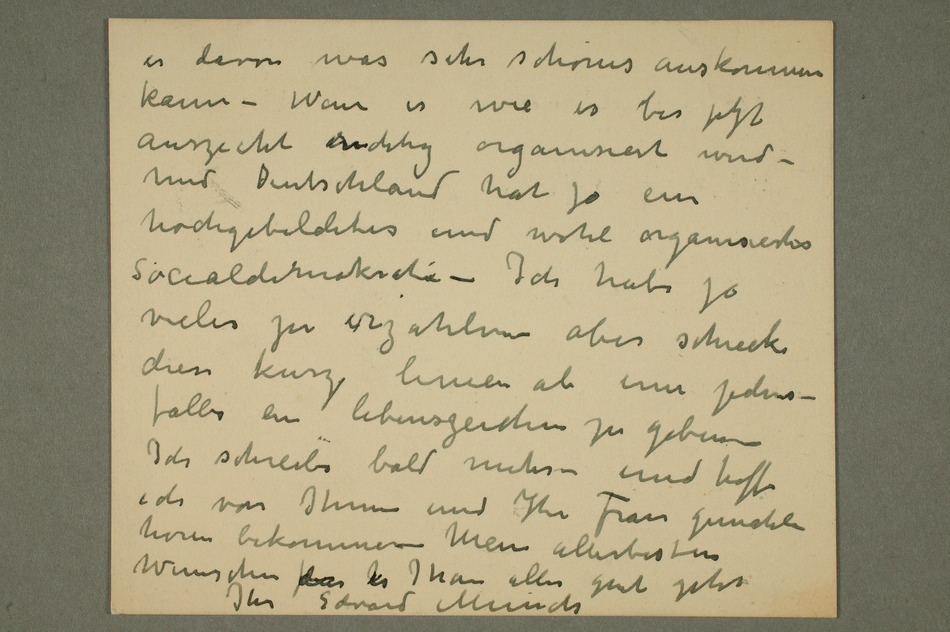 es davon was sehr schönes auskommen
kann – Wenn es wie es bis jetzt
aussieht richtig organisiert wird –
und Deutschland hat ja ein
hochgebildetes und wohl organisiertes
Socialdemokratie – Ich habe ja
vieles zu erzählen aber schicke
diese kurze linien ab um jedens-
falls ein lebenszeichen zu geben
Ich schreibe bald mehr und hoffe
ich von Ihnen und Ihr Frau
horen bekommen Mein allerbesten
Wunschen das es Ihnen alles gut geht
Ihr Edvard Munch